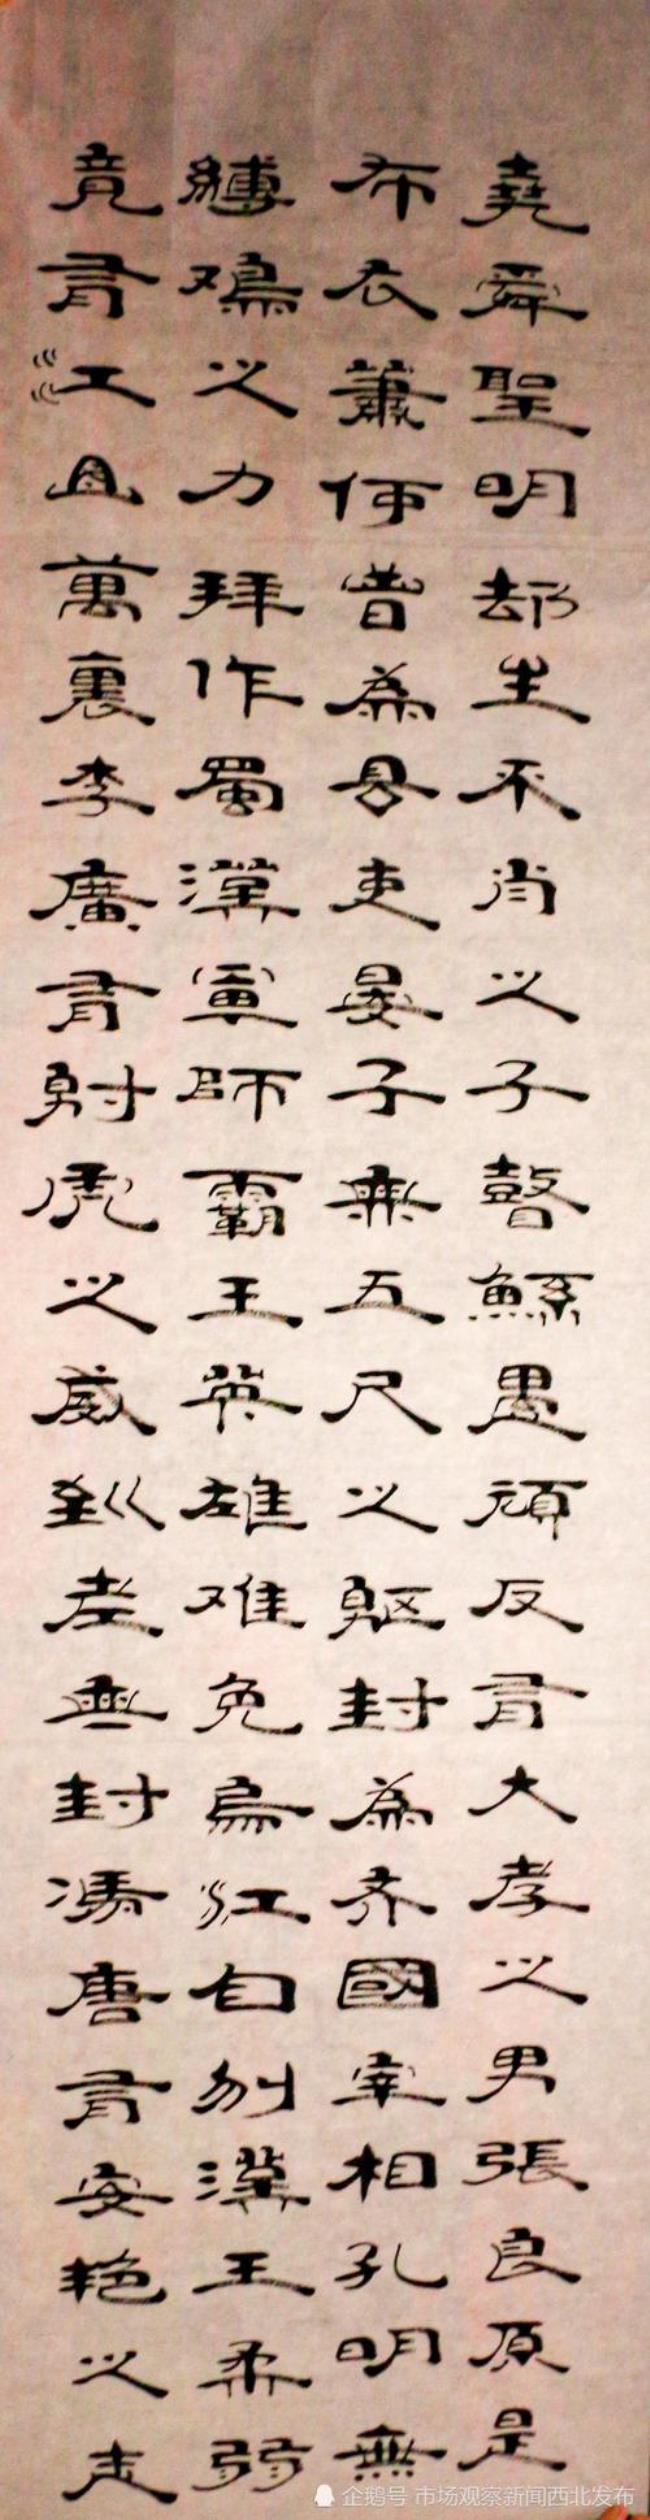 堯舜聖明却生不肖之子瞽鯀愚頑反有大孝之男張良原是
布衣蕭何昔為县吏晏子無五尺之躯封為齐國宰相孔明無
縛鳮之力拜作蜀漢軍師霸王英雄难免烏江自刎漢王柔弱
竟有江山萬裏李廣有射虎之威到老無封馮唐有安艳之志
企鹅号 市场观察新闻西北发布